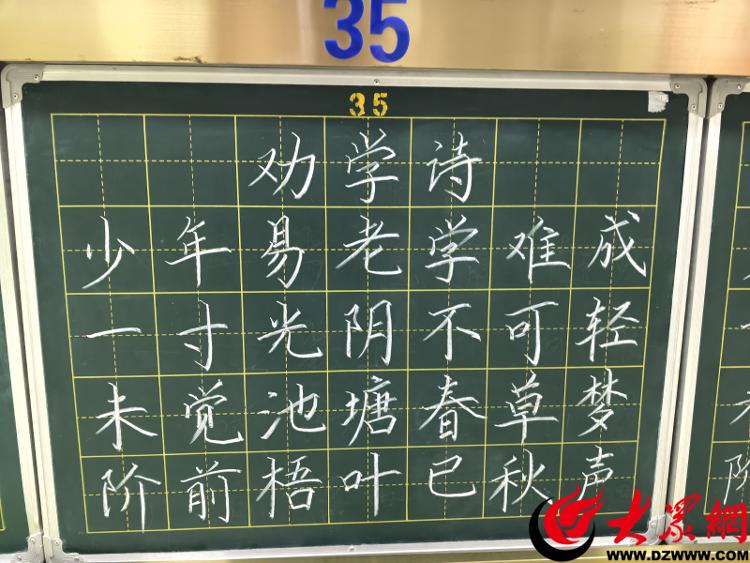 35
35
劝学诗
少年易老学难成
一寸光阴不可轻
未觉池塘春草梦
阶前梧叶已秋声
大眾網
WWW.DZWWW.COM